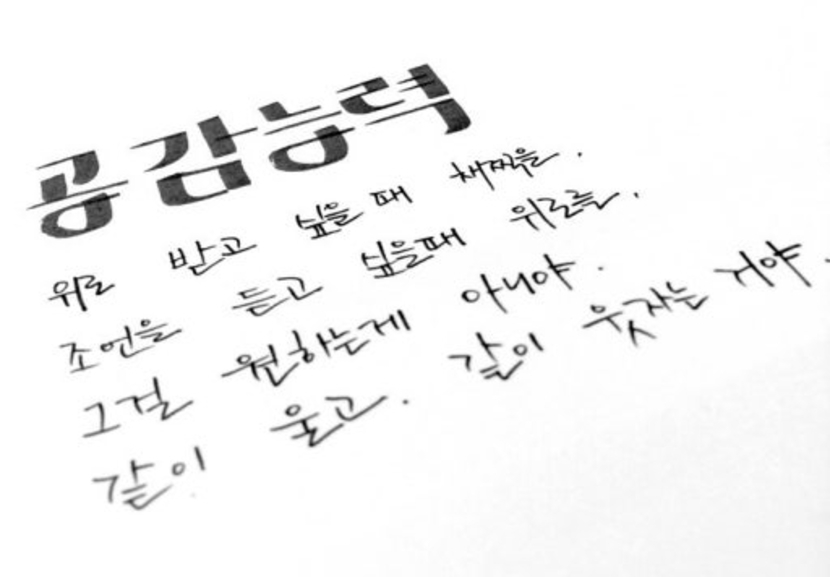 공감능력
위로 받고 싶을 때 채찍을.
조언을 듣고 싶을때 위로를.
그걸 원하는게 아니야.
같이 울고. 같이 웃자는 거야.